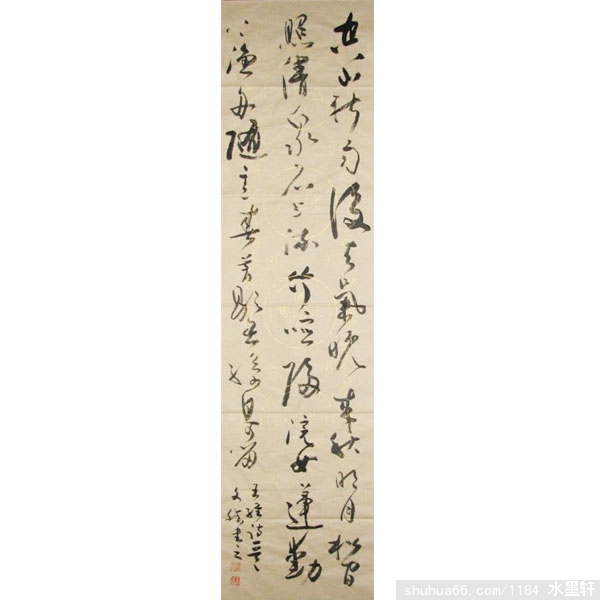 空山新雨後天氣晚來秋明月松間
照清泉石上流竹喧歸浣女蓮動
下漁舟隨意春芳歇王孫自可留
王維詩一首
文書之
shuhua66.com/1184 水墨轩